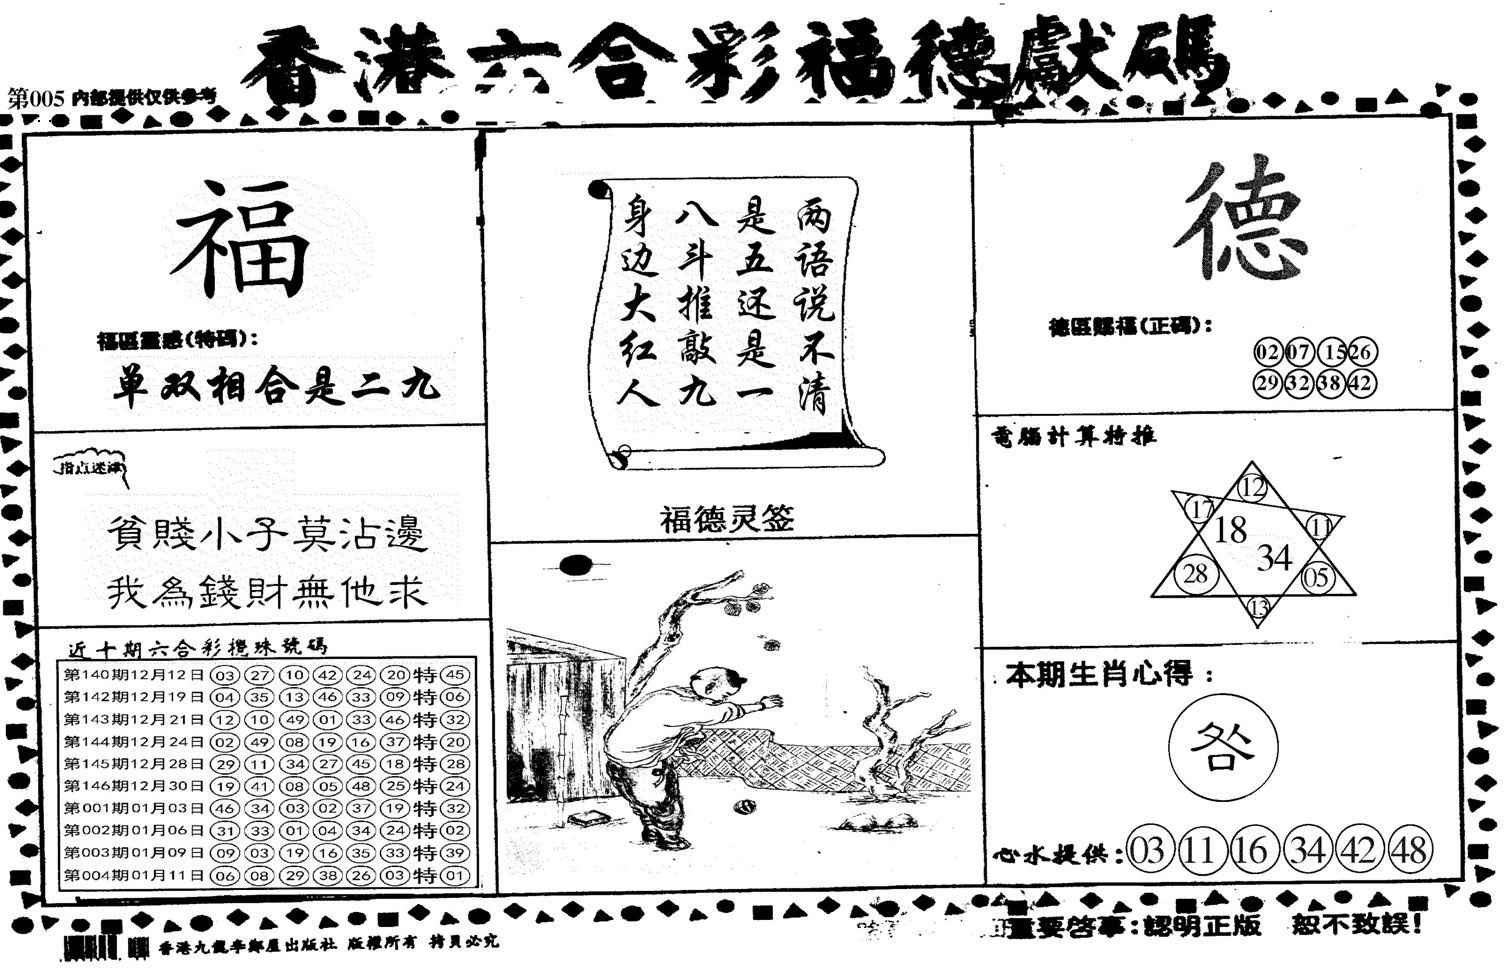 香港六合彩福德獻碼
第005 内部提供仅供参考
福
福區靈感(特碼):
单双相合是二九
指点迷津
貧賤小子莫沾邊
我為錢財無他求
近十期六合彩攪珠號碼
第140期12月12日 03 27 10 42 24 20 特 45
第142期12月19日 04 35 13 46 33 09 特 06
第143期12月21日 12 10 49 01 33 46 特 32
第144期12月24日 02 49 08 19 16 37 特 20
第145期12月28日 29 11 34 27 45 18 特 28
第146期12月30日 19 41 08 05 48 25 特 24
第001期01月03日 46 34 03 02 37 19 特 32
第002期01月06日 31 33 01 04 34 24 特 02
第003期01月09日 09 03 19 16 35 33 特 39
第004期01月11日 06 08 29 38 26 03 特 01
两语说不清
是五还是一
八斗推敲九
身边大红人
福德灵签
德
德區賜福(正碼):
02 07 15 26
29 32 38 42
電腦計算特推
12
17
11
18
34
28
05
13
本期生肖心得:
咎
心水提供: 03 11 16 34 42 48
香港九龍李鄭屋出版社 版權所有 拷貝必究
重要啓事:認明正版 恕不致誤!